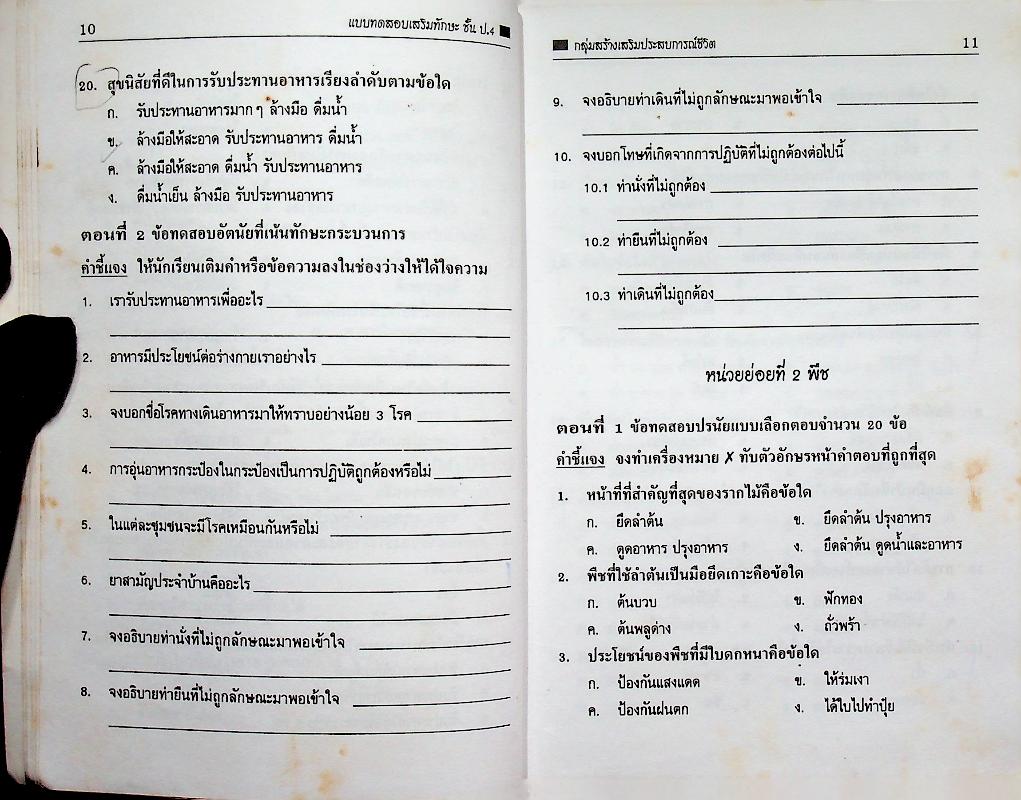 10 แบบทดสอบเสริมทักษะ ชั้น ป.4
20. สุขนิสัยที่ดีในการรับประทานอาหารเรียงลำดับตามข้อใด
ก. รับประทานอาหารมาก ๆ ล้างมือ ดื่มน้ำ
ข. ล้างมือให้สะอาด รับประทานอาหาร ดื่มน้ำ
ค. ล้างมือให้สะอาด ดื่มน้ำ รับประทานอาหาร
ง. ดื่มน้ำเย็น ล้างมือ รับประทานอาหาร
ตอนที่ 2 ข้อทดสอบอัตนัยที่เน้นทักษะกระบวนการ
คำชี้แจง ให้นักเรียนเติมคำหรือข้อความลงในช่องว่างให้ได้ใจความ
1. เรารับประทานอาหารเพื่ออะไร
2. อาหารมีประโยชน์ต่อร่างกายเราอย่างไร
3. จงบอกชื่อโรคทางเดินอาหารมาให้ทราบอย่างน้อย 3 โรค
4. การอุ่นอาหารกระป๋องในกระป๋องเป็นการปฏิบัติถูกต้องหรือไม่
5. ในแต่ละชุมชนจะมีโรคเหมือนกันหรือไม่
6. ยาสามัญประจำบ้านคืออะไร
7. จงอธิบายท่านั่งที่ไม่ถูกลักษณะมาพอเข้าใจ
8. จงอธิบายท่ายืนที่ไม่ถูกลักษณะมาพอเข้าใจ
กลุ่มสร้างเสริมประสบการณ์ชีวิต 11
9. จงอธิบายท่าเดินที่ไม่ถูกลักษณะมาพอเข้าใจ
10. จงบอกโทษที่เกิดจากการปฏิบัติที่ไม่ถูกต้องต่อไปนี้
10.1 ท่านั่งที่ไม่ถูกต้อง
10.2 ท่ายืนที่ไม่ถูกต้อง
10.3 ท่าเดินที่ไม่ถูกต้อง
หน่วยย่อยที่ 2 พืช
ตอนที่ 1 ข้อทดสอบปรนัยแบบเลือกตอบจำนวน 20 ข้อ
คำชี้แจง จงทำเครื่องหมาย ✗ ทับตัวอักษรหน้าคำตอบที่ถูกที่สุด
1. หน้าที่ที่สำคัญที่สุดของรากไม้คือข้อใด
ก. ยึดลำต้น ข. ยึดลำต้น ปรุงอาหาร
ค. ดูดอาหาร ปรุงอาหาร ง. ยึดลำต้น ดูดน้ำและอาหาร
2. พืชที่ใช้ลำต้นเป็นมือยึดเกาะคือข้อใด
ก. ต้นบวบ ข. ฟักทอง
ค. ต้นพลูด่าง ง. ถั่วพร้า
3. ประโยชน์ของพืชที่มีใบดกหนาคือข้อใด
ก. ป้องกันแสงแดด ข. ให้ร่มเงา
ค. ป้องกันฝนตก ง. ได้ใบไปทำปุ๋ย